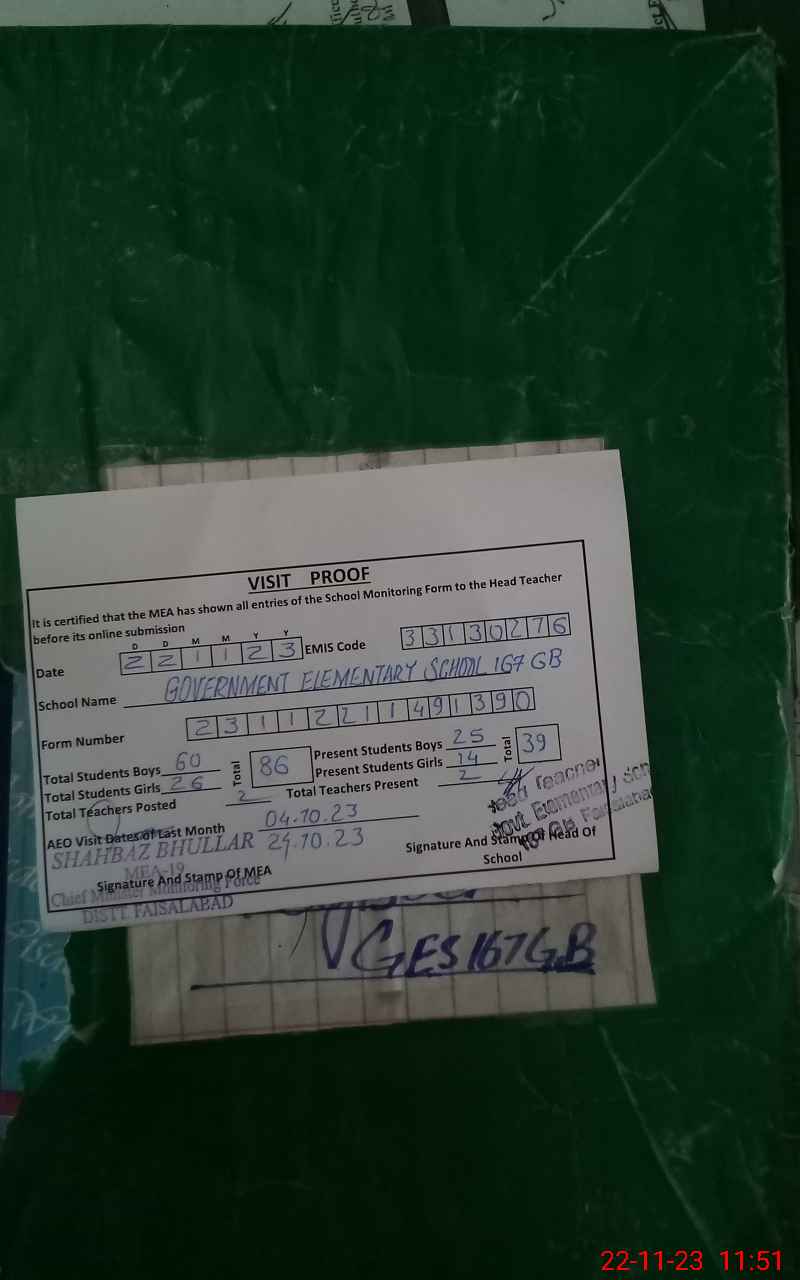 VISIT PROOF
It is certified that the MEA has shown all entries of the School Monitoring Form to the Head Teacher
before its online submission
D D M M Y Y
Date 2 2 1 1 2 3 EMIS Code 3 3 1 3 0 2 7 6
School Name GOVERNMENT ELEMENTARY SCHOOL 167 GB
Form Number 2 3 1 1 2 2 1 1 4 9 1 3 9 0
Total Students Boys 60 Total 86 Present Students Boys 25 Total 39
Total Students Girls 26 Present Students Girls 14
Total Teachers Posted 2 Total Teachers Present 2
Head Teacher
Govt Elementary Sch
AEO Visit Dates of Last Month 04.10.23
24.10.23
SHAHBAZ BHULLAR
MEA-19
Chief Minister Monitoring Force
DISTT. FAISALABAD
Signature And Stamp Of MEA
Signature And Stamp Of Head Of
School
GES 167 GB
22-11-23 11:51